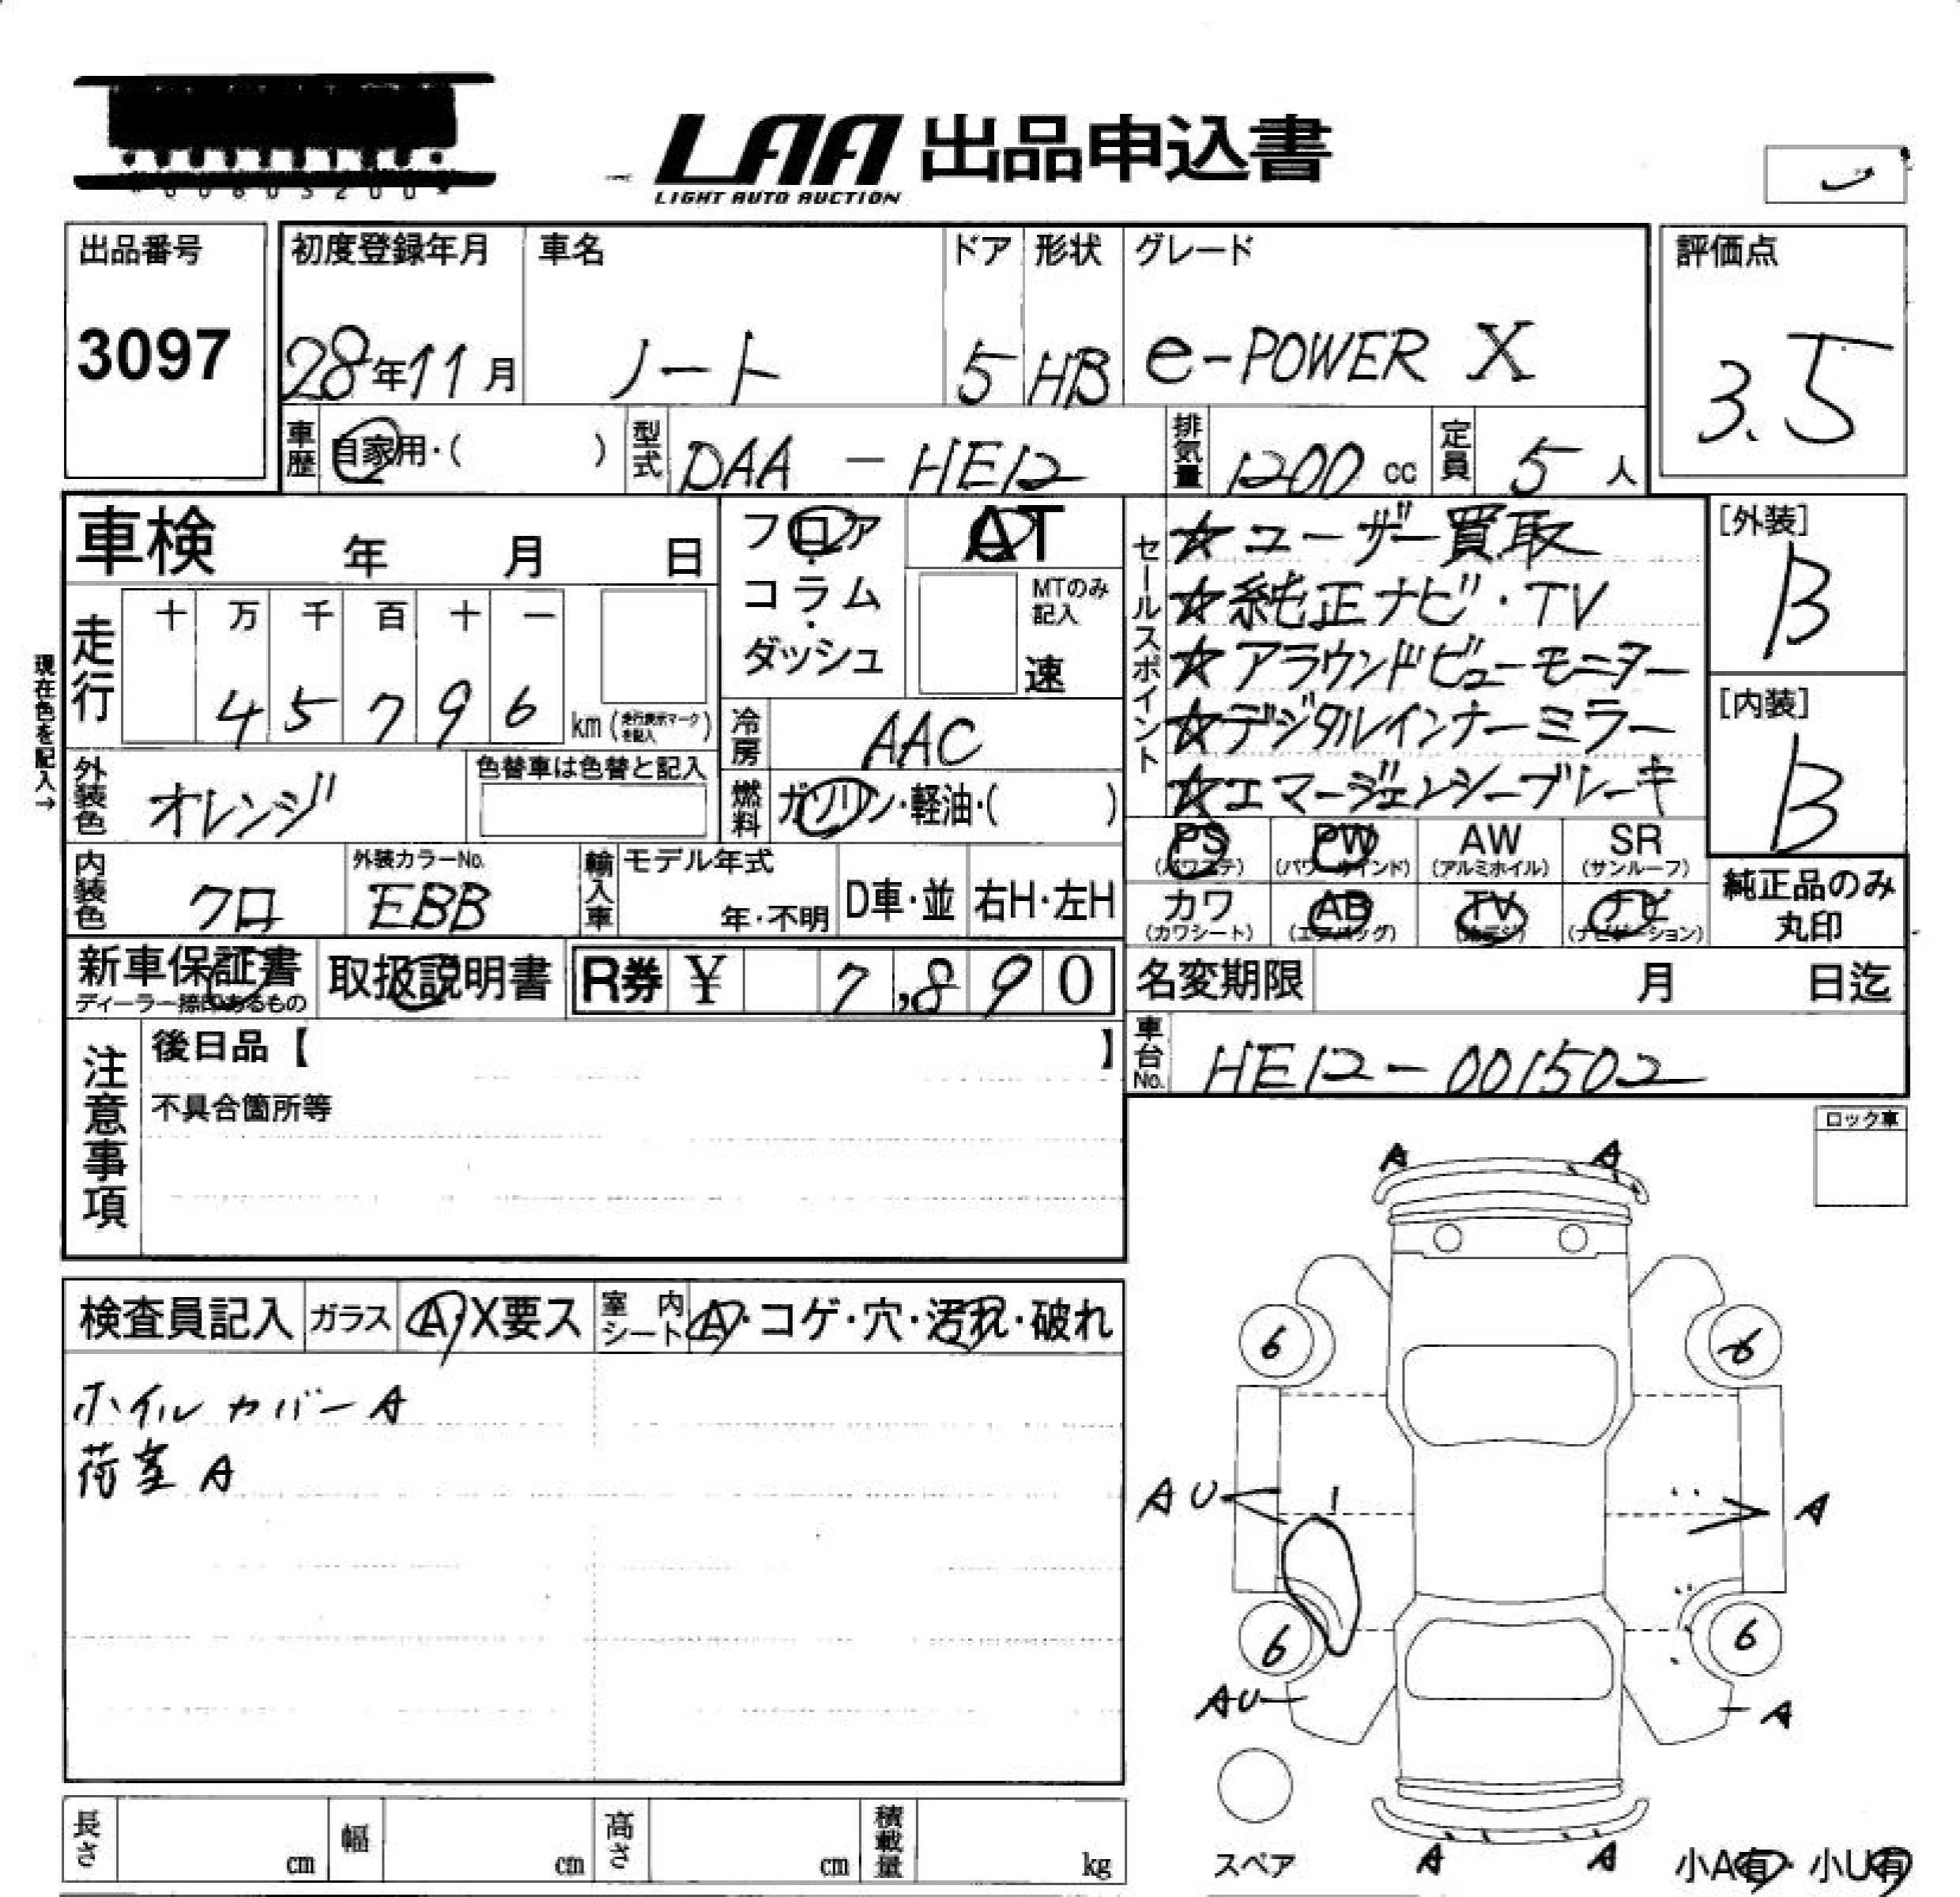 LAA 出品申込書
LIGHT AUTO AUCTION
出品番号
3097
初度登録年月
28年11月
車名
ノート
ドア
5
形状
HB
グレード
e-POWER X
評価点
3.5
車歴
自家用・( )
型式
DAA - HE12
排気量
1200 cc
定員
5 人
車検 年 月 日
フロア
コラム
ダッシュ
AT
MTのみ
記入
速
走行
十 万 千 百 十 一
4 5 7 9 6
km (走行表示マークを記入)
現在色を記入→
冷房
AAC
外装色
オレンジ
色替車は色替と記入
燃料
ガソリン・軽油・( )
セールスポイント
☆ユーザー買取
☆純正ナビ・TV
☆アラウンドビューモニター
☆デジタルインナーミラー
☆エマージェンシーブレーキ
[外装]
B
[内装]
B
PS
(パワステ)
PW
(パワーウインド)
AW
(アルミホイル)
SR
(サンルーフ)
カワ
(カワシート)
AB
(エアバッグ)
TV
ナビ
(ナビゲーション)
純正品のみ
丸印
内装色
クロ
外装カラーNo.
EBB
輸入車
モデル年式
年・不明
D車・並
右H・左H
新車保証書
ディーラー捺印あるもの
取扱説明書
R券 ¥ 7,890
名変期限 月 日迄
車台No.
HE12-001502
注意事項
後日品【 】
不具合箇所等
ロック車
検査員記入
ガラス
A・X要ス
室内シート
A・コゲ・穴・汚れ・破れ
ホイルカバーA
荷室A
A A
6 6
AU A
6 6
AU A
スペア
A A
小A有・小U有
長さ cm
幅 cm
高さ cm
積載量 kg